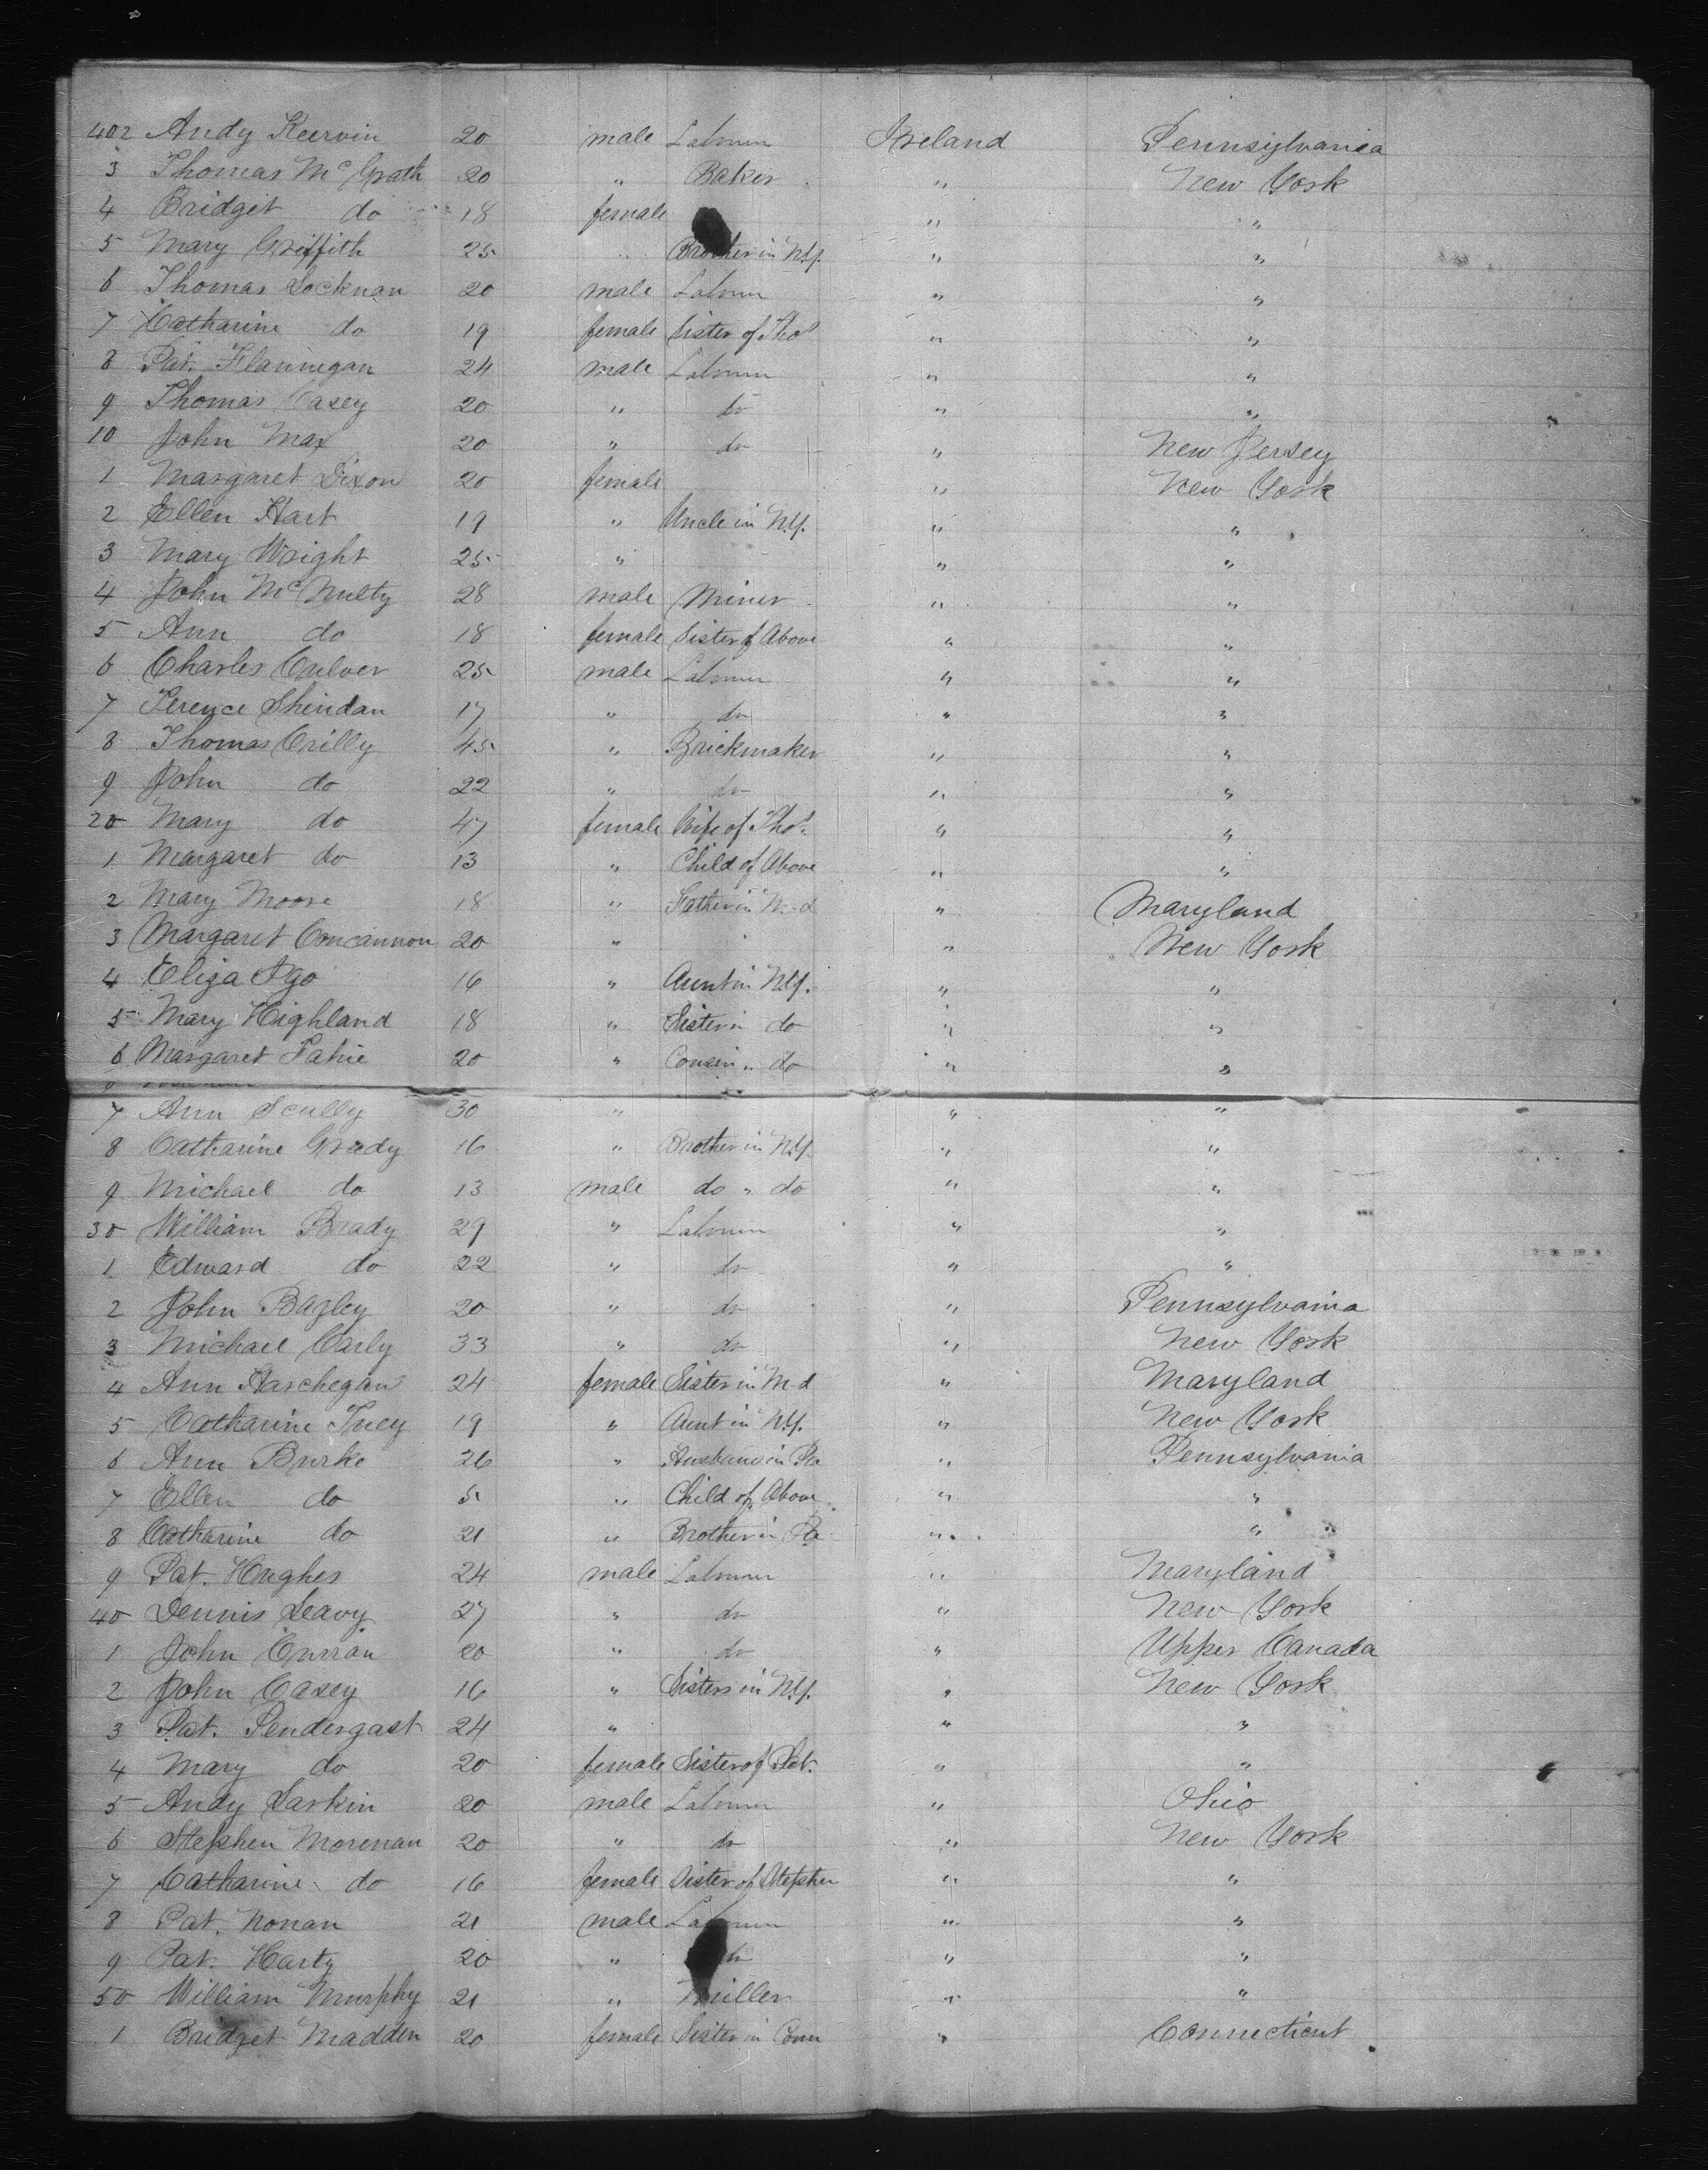 402 Andy Keervin 20 male Labourer Ireland Pennsylvania
3 Thomas McGrath 20 " Baker " New York
4 Bridget do 18 female " "
5 Mary Griffith 25 " Brother in N.Y. " "
6 Thomas Locknan 20 male Labourer " "
7 Catharine do 19 female Sister of Thos " "
8 Pat. Flannegan 24 male Labourer " "
9 Thomas Casey 20 " do " "
10 John Max 20 " do " New Jersey
1 Margaret Dixon 20 female " New York
2 Ellen Hart 19 " Uncle in N.Y. " "
3 Mary Wright 25 " " "
4 John McNulty 28 male Miner " "
5 Ann do 18 female Sister of Above " "
6 Charles Culver 25 male Labourer " "
7 Terence Sheridan 17 " do " "
8 Thomas Crilly 45 " Brickmaker " "
9 John do 22 " do " "
20 Mary do 47 female Wife of Thos. " "
1 Margaret do 13 " Child of Above " "
2 Mary Moore 18 " Father in Md " Maryland
3 Margaret Concannon 20 " " New York
4 Eliza 16 " Aunt in N.Y. " "
5 Mary Highland 18 " Sister in do " "
6 Margaret 20 " Cousin " do " "
7 Ann Scully 30 " " "
8 Catharine Grady 16 " Brother in N.Y. " "
9 Michael do 13 male do " do " "
30 William Brady 29 " Labourer " "
1 Edward do 22 " do " "
2 John Bagley 20 " do " Pennsylvania
3 Michael Carly 33 " do " New York
4 Ann 24 female Sister in Md " Maryland
5 Catharine 19 " Aunt in N.Y. " New York
6 Ann Burke 26 " Husband in Pa " Pennsylvania
7 Ellen do 5 " Child of Above " "
8 Catharine do 21 " Brother in Pa " "
9 Pat. Hughes 24 male Labourer " Maryland
40 Dennis Leavy 27 " do " New York
1 John Curran 20 " do " Upper Canada
2 John Casey 16 " Sisters in N.Y. " New York
3 Pat. Pendergast 24 " " "
4 Mary do 20 female Sister of Pat. " "
5 Andy Larkin 20 male Labourer " Ohio
6 Stephen Morenan 20 " do " New York
7 Catharine do 16 female Sister of Stephen " "
8 Pat. Nonan 21 male Labourer " "
9 Pat. Harty 20 " do " "
50 William Murphy 21 " Miller " "
1 Bridget Madden 20 female Sister in Conn " Connecticut